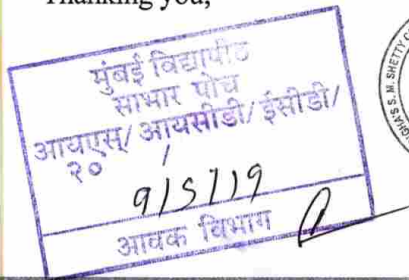 Thanking you,
मुंबई विद्यापीठ
साभार पोच
आयएस/ आयसीडी/ ईसीडी/
२० /
9/5/19
आवक विभाग
GHA'S S. M. SHETTY CO